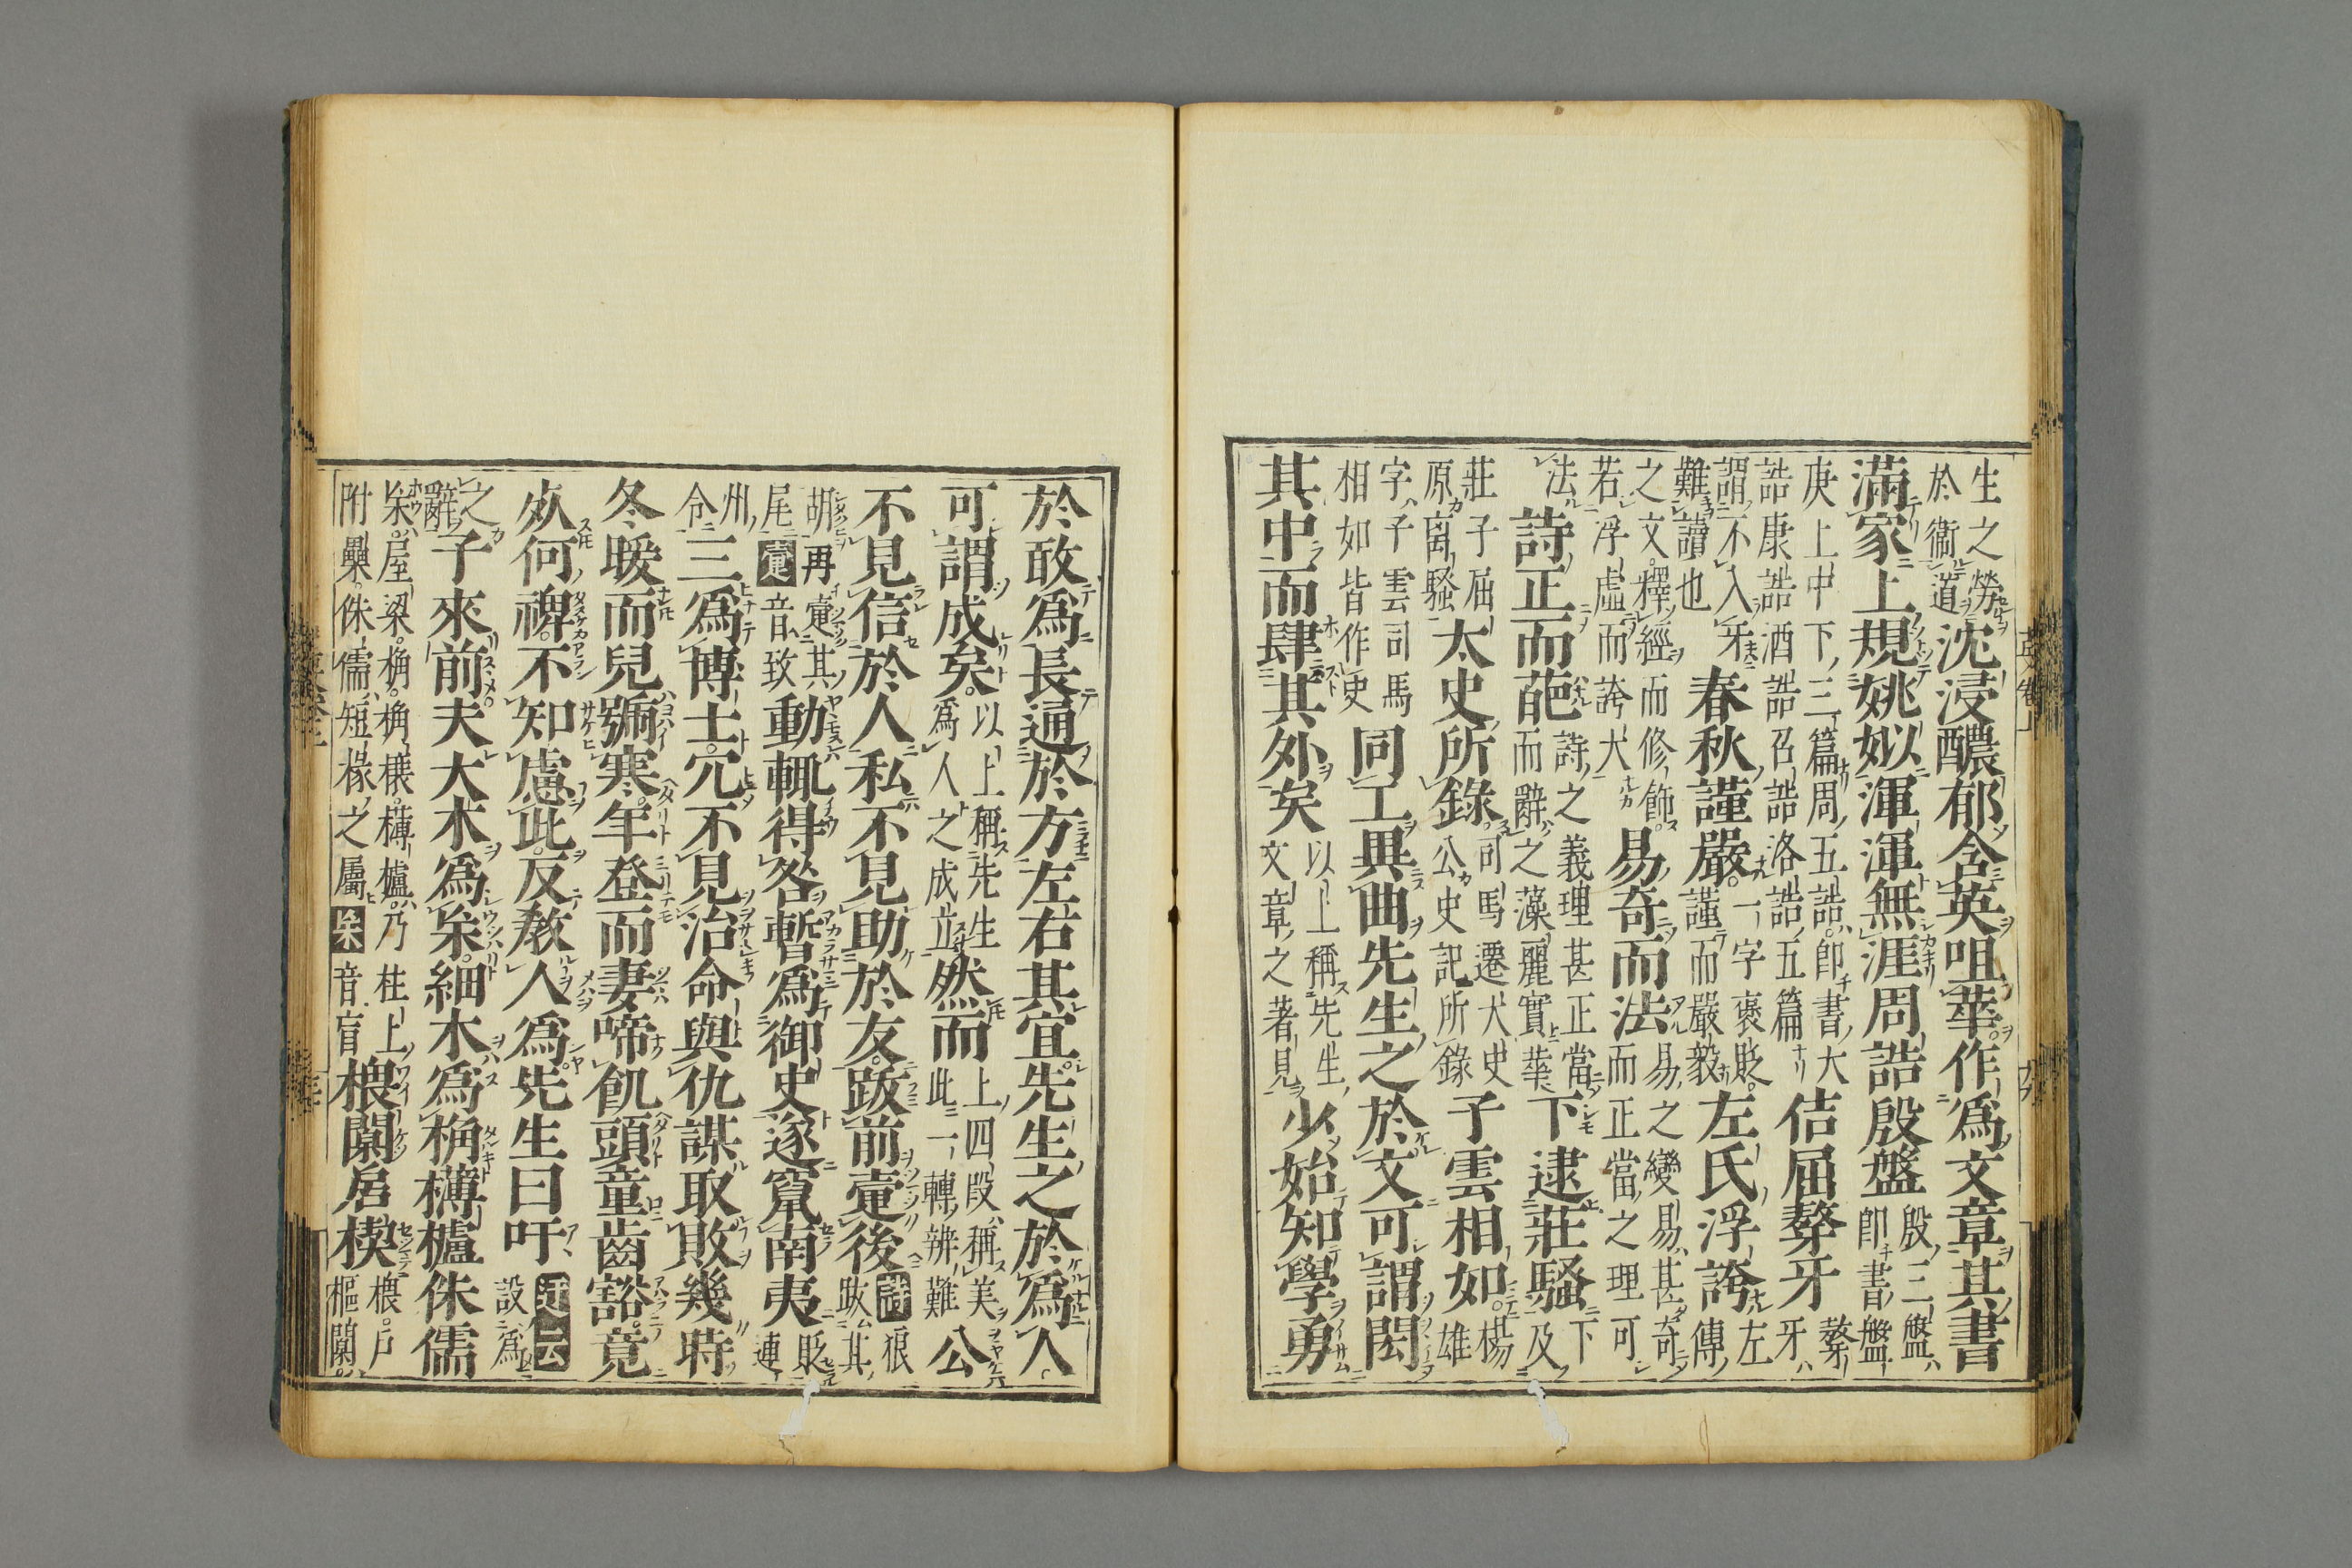 生之勞於衞道沈浸醲郁含英咀華作爲文章其書
滿家上規姚姒渾渾無涯周誥殷盤殷三盤即書盤
庚上中下三篇周五誥即書大誥康誥酒誥召誥洛誥五篇佶屈聱牙聱牙
謂不入牙難讀也春秋謹嚴一字褒貶謹而嚴毅左氏浮誇左傳
之文釋經而修飾若浮虛而誇大易奇而法易之變易甚奇而正當之理可
法詩正而葩詩之義理甚正當而辭之藻麗實華下逮莊騷下及
莊子屈原离騷太史所錄司馬遷大史公史記所錄子雲相如楊雄
字子雲司馬相如皆作史同工異曲先生之於文可謂閎
其中而肆其外矣以上稱先生文章之著見少始知學勇
於敢爲長通於方左右其宜先生之於爲人
可謂成矣。以上稱先生爲人之成立然而上四段稱美此一轉辨難公
不見信於人私不見助於友。跋前疐後詩狼跋其
胡再疐其尾疐音致動輒得咎暫爲御史遂竄南夷貶連
州令三爲博士。冗不見治命與仇謀取敗幾時
冬暖而兒號寒。年登而妻啼飢頭童齒豁。竟
死何裨。不知慮此。反教人爲先生曰吁述云設爲
之辭子來前夫大木爲杗。細木爲桷欂櫨侏儒
杗屋梁。桷。桷榱。欂櫨。乃柱上附。侏儒短椽之屬杗音盲椳闑扂楔椳。戶樞闑。